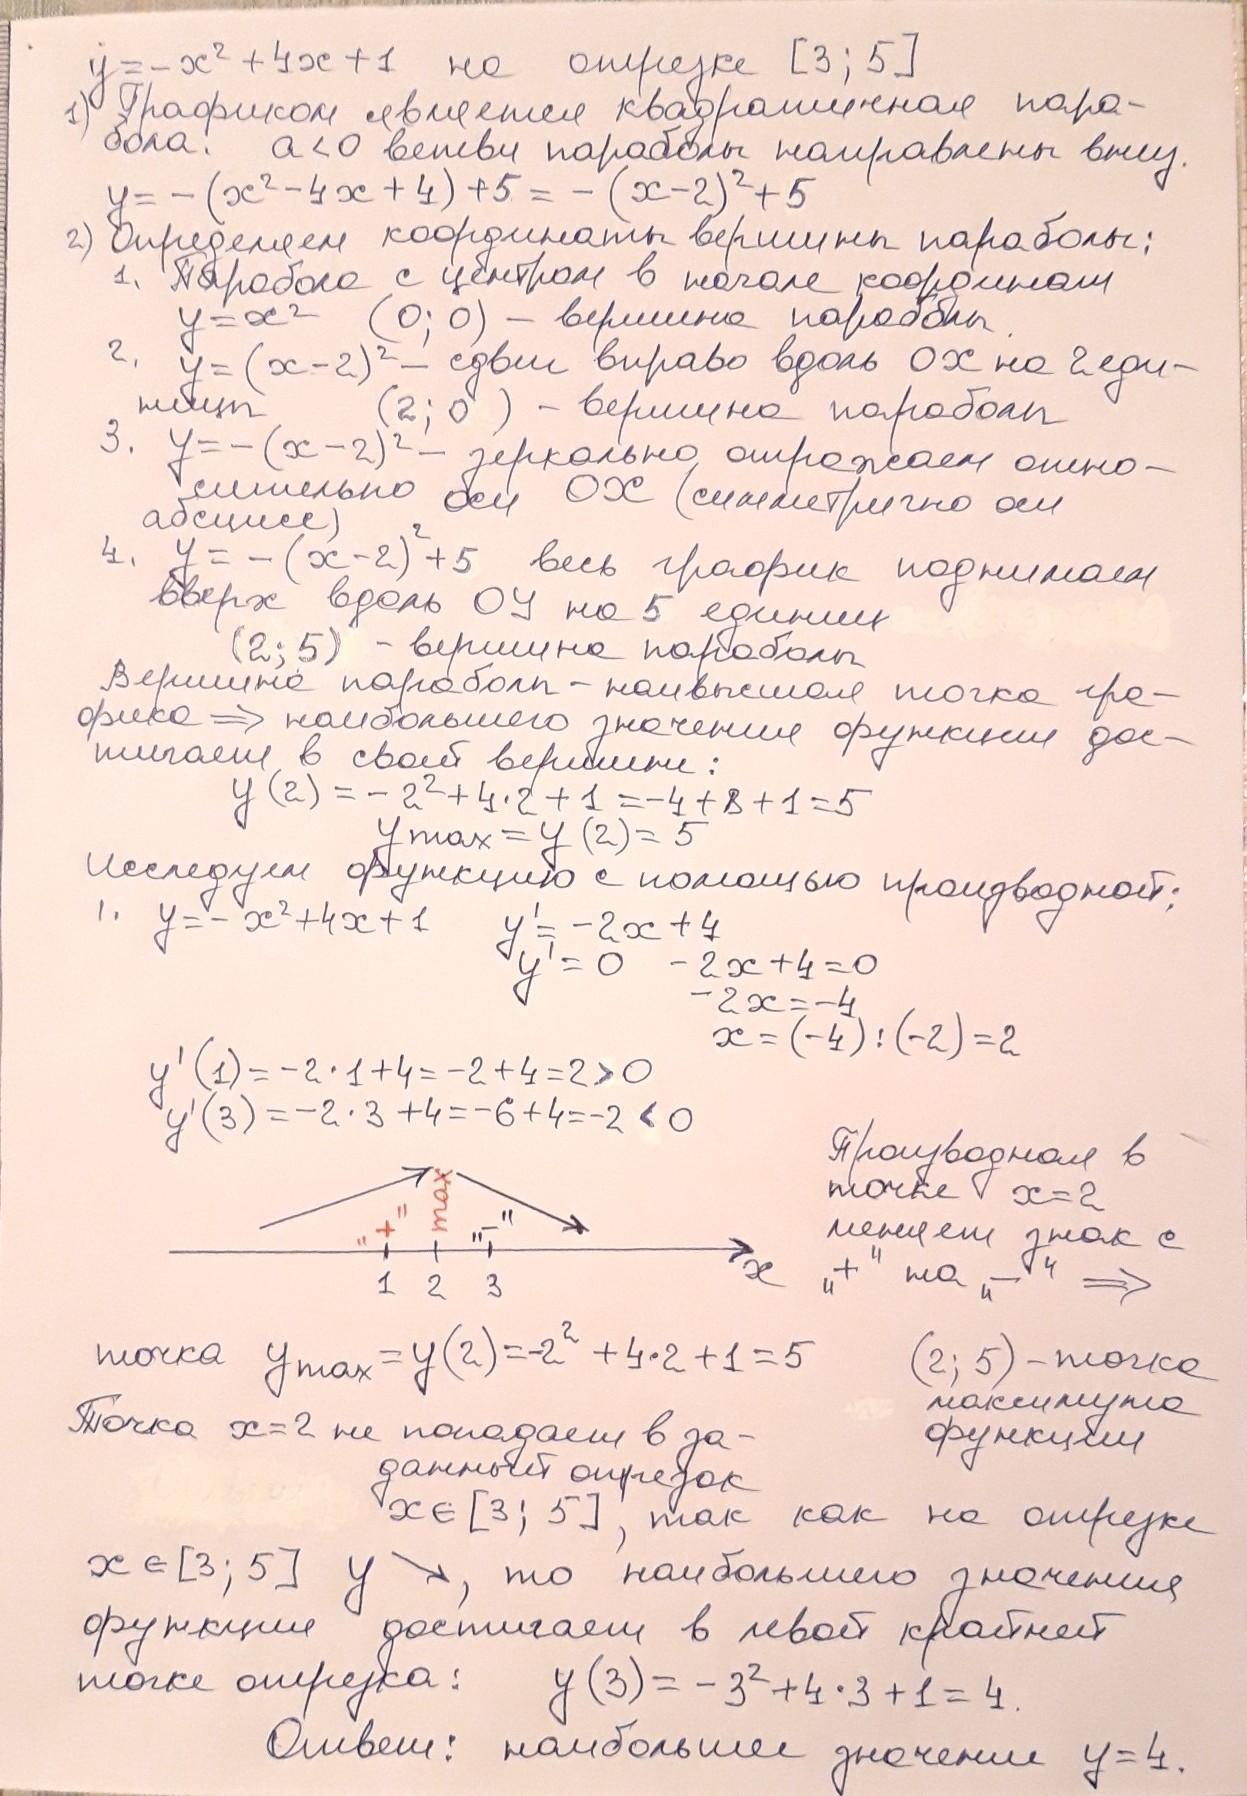 y=-x²+4x+1 на отрезке [3; 5]
1) Графиком является квадратичная пара-
бола. a<0 ветви параболы направлены вниз.
y=-(x²-4x+4)+5=-(x-2)²+5
2) Определяем координаты вершины параболы:
1. Парабола с центром в начале координат
y=x² (0; 0) - вершина параболы.
2. y=(x-2)² - сдвиг вправо вдоль OX на 2 еди-
ницы (2; 0) - вершина параболы
3. y=-(x-2)² - зеркально отражаем отно-
сительно оси OX (симметрично оси
абсцисс)
4. y=-(x-2)²+5 весь график поднимаем
вверх вдоль OY на 5 единиц
(2; 5) - вершина параболы
Вершина параболы - наивысшая точка гра-
фика => наибольшего значения функция дос-
тигает в своей вершине:
y(2)=-2²+4·2+1=-4+8+1=5
ymax=y(2)=5
Исследуем функцию с помощью производной:
1. y=-x²+4x+1 y'=-2x+4
y'=0 -2x+4=0
-2x=-4
x=(-4):(-2)=2
y'(1)=-2·1+4=-2+4=2>0
y'(3)=-2·3+4=-6+4=-2<0
"+" max "-"
1 2 3 x
Производная в
точке x=2
меняет знак с
"+" на "-" =>
точка ymax=y(2)=-2²+4·2+1=5
(2; 5) - точка
максимума
функции
Точка x=2 не попадает в за-
данный отрезок
x∈[3; 5], так как на отрезке
x∈[3; 5] y ↘, то наибольшего значения
функция достигает в левой крайней
точке отрезка: y(3)=-3²+4·3+1=4.
Ответ: наибольшее значение y=4.